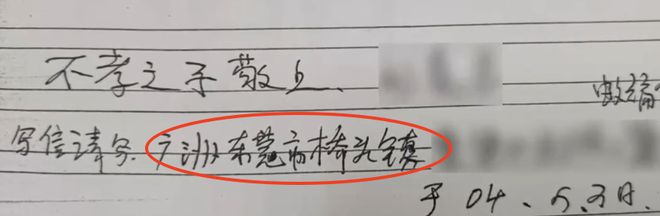 不孝之子敬上.
写信请写.广洲东莞市桥头镇
于04、5.3日.